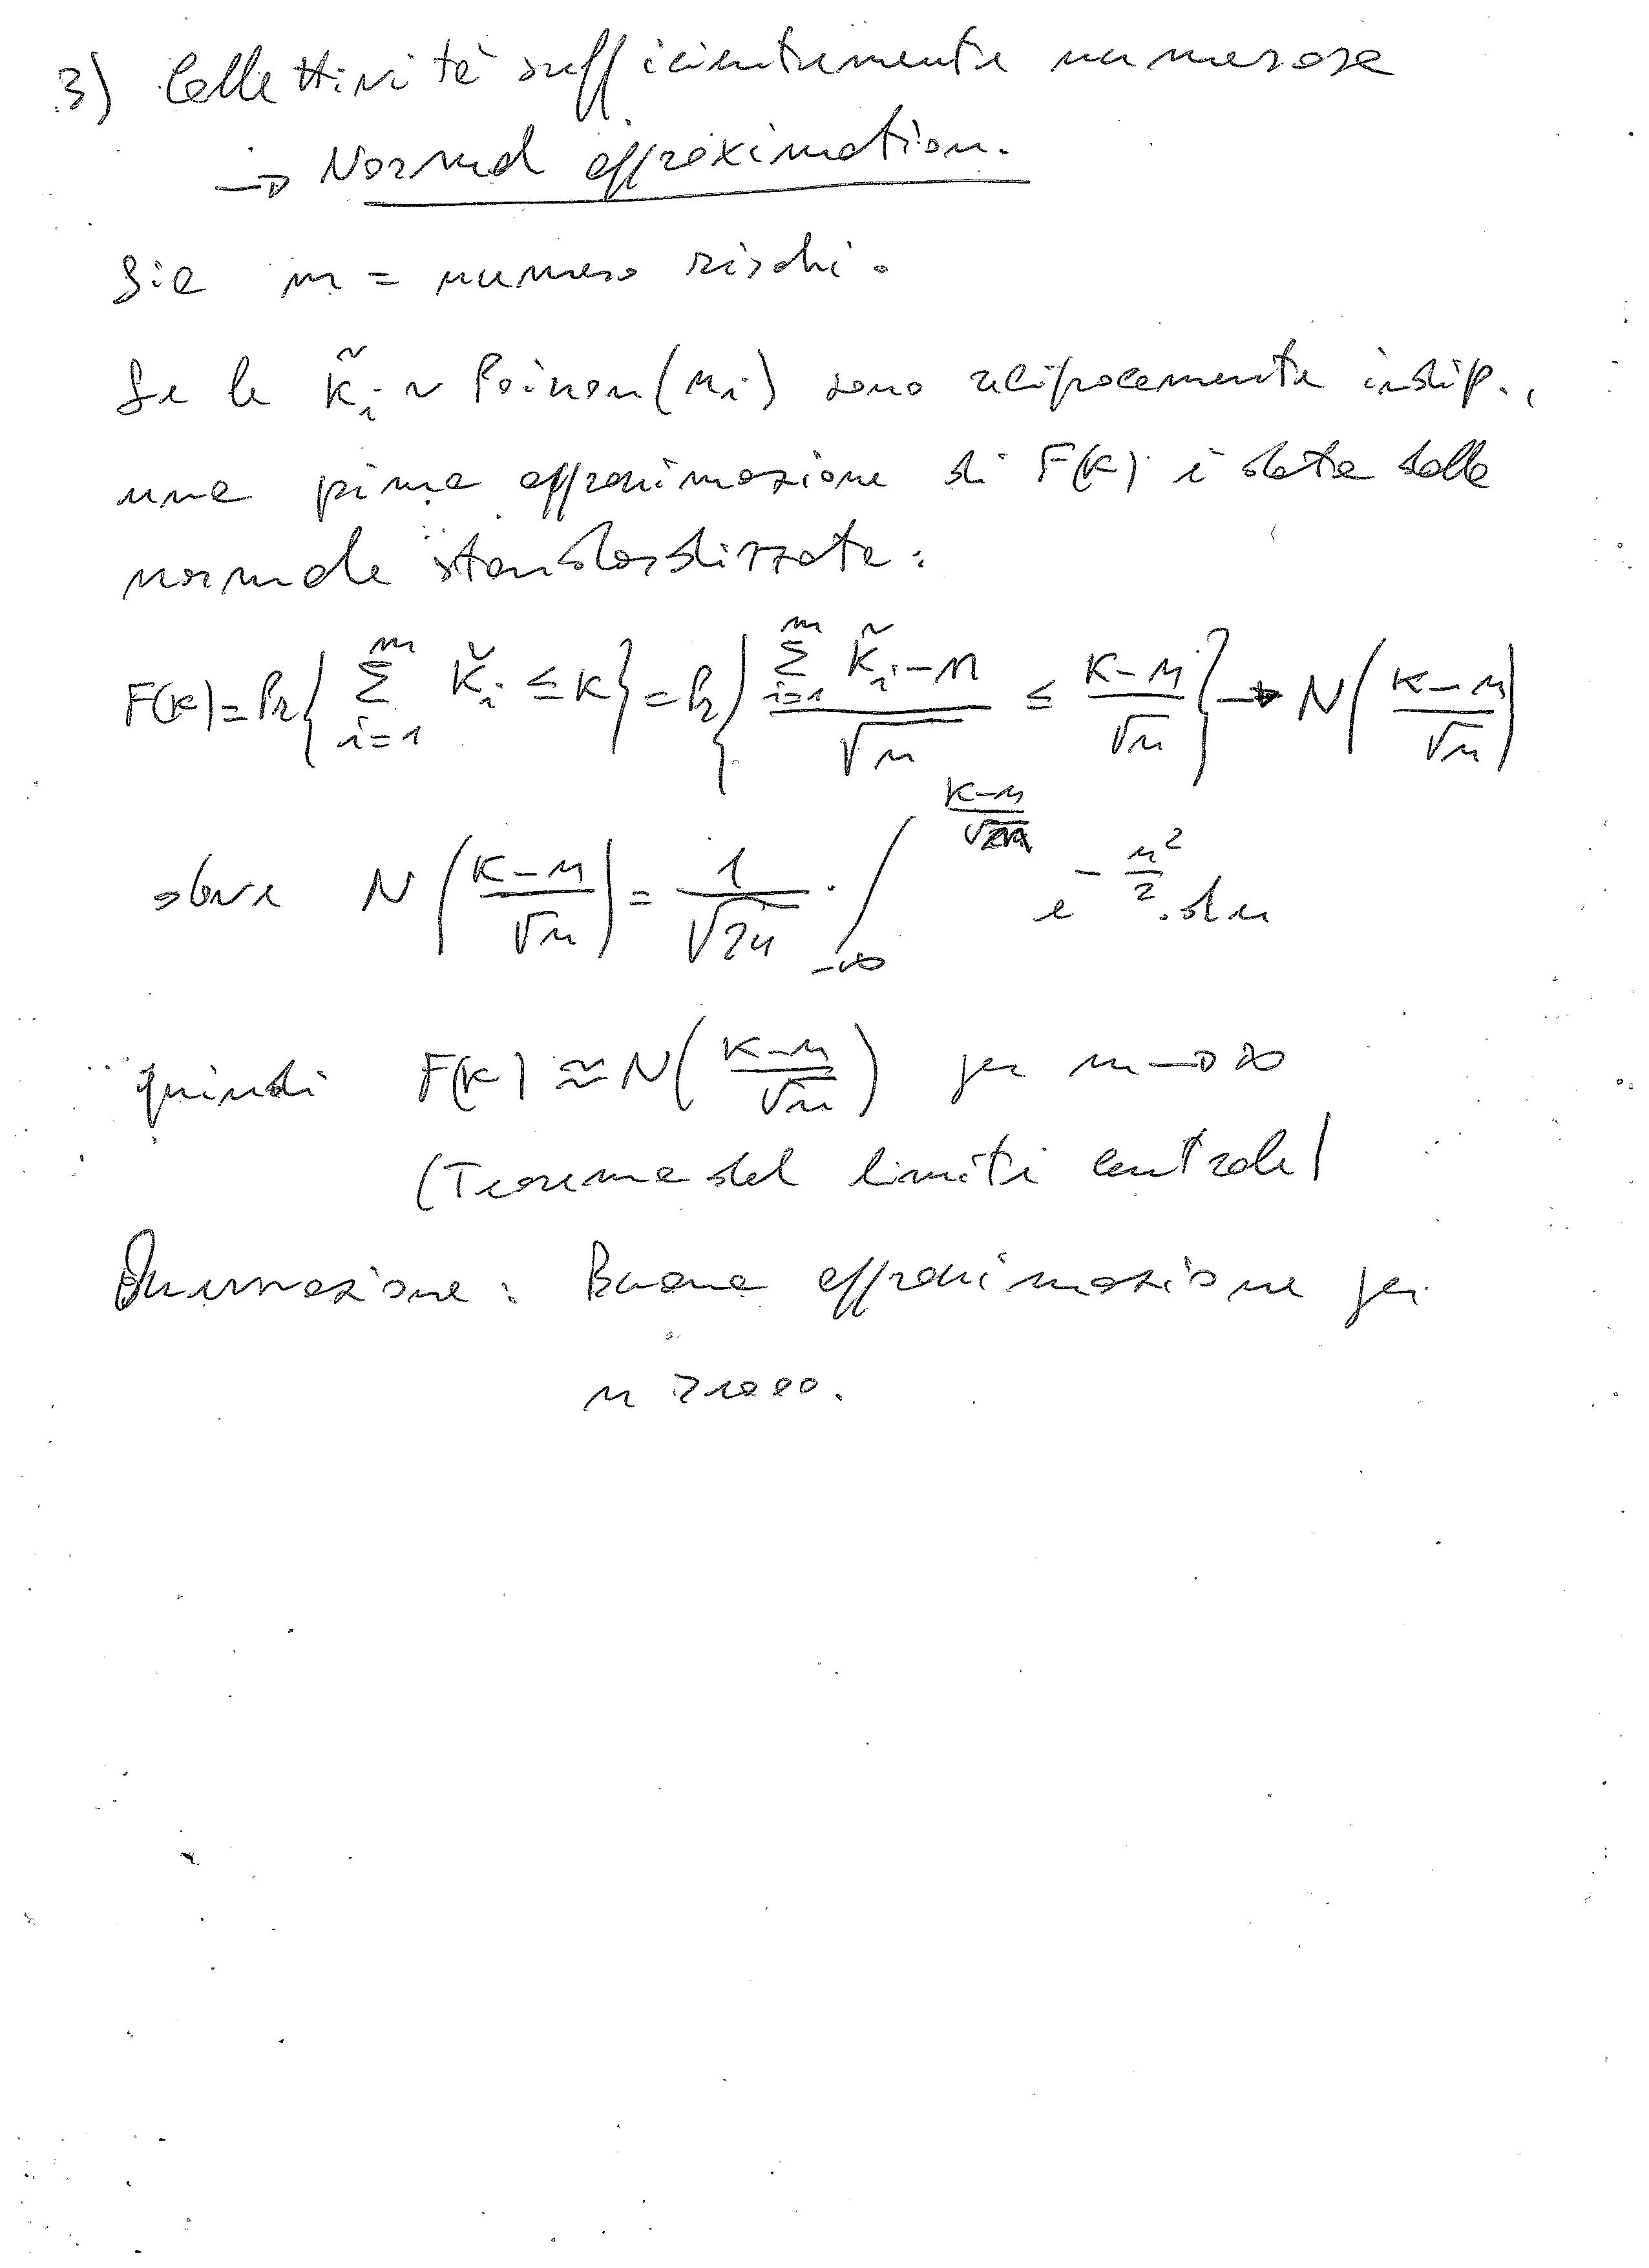 3) Collettività sufficientemente numerosa
→ Normal approximation.
Sia m = numero rischi.
Se le K̃_i ~ Poisson(n_i) sono reciprocamente indip.,
una prima approssimazione di F(K) è data dalla
normale standardizzata:
F(K) = Pr{ Σ_{i=1}^{m} K̃_i ≤ K } = Pr{ (Σ_{i=1}^{m} K̃_i - n)/√n ≤ (K-n)/√n } → N((K-n)/√n)
dove N((K-n)/√n) = 1/√2π · ∫_{-∞}^{(K-n)/√n} e^{-u²/2} · du
quindi F(K) ≅ N((K-n)/√n) per m → ∞
(Teorema del limite centrale)
Osservazione: Buona approssimazione per
n > 1000.